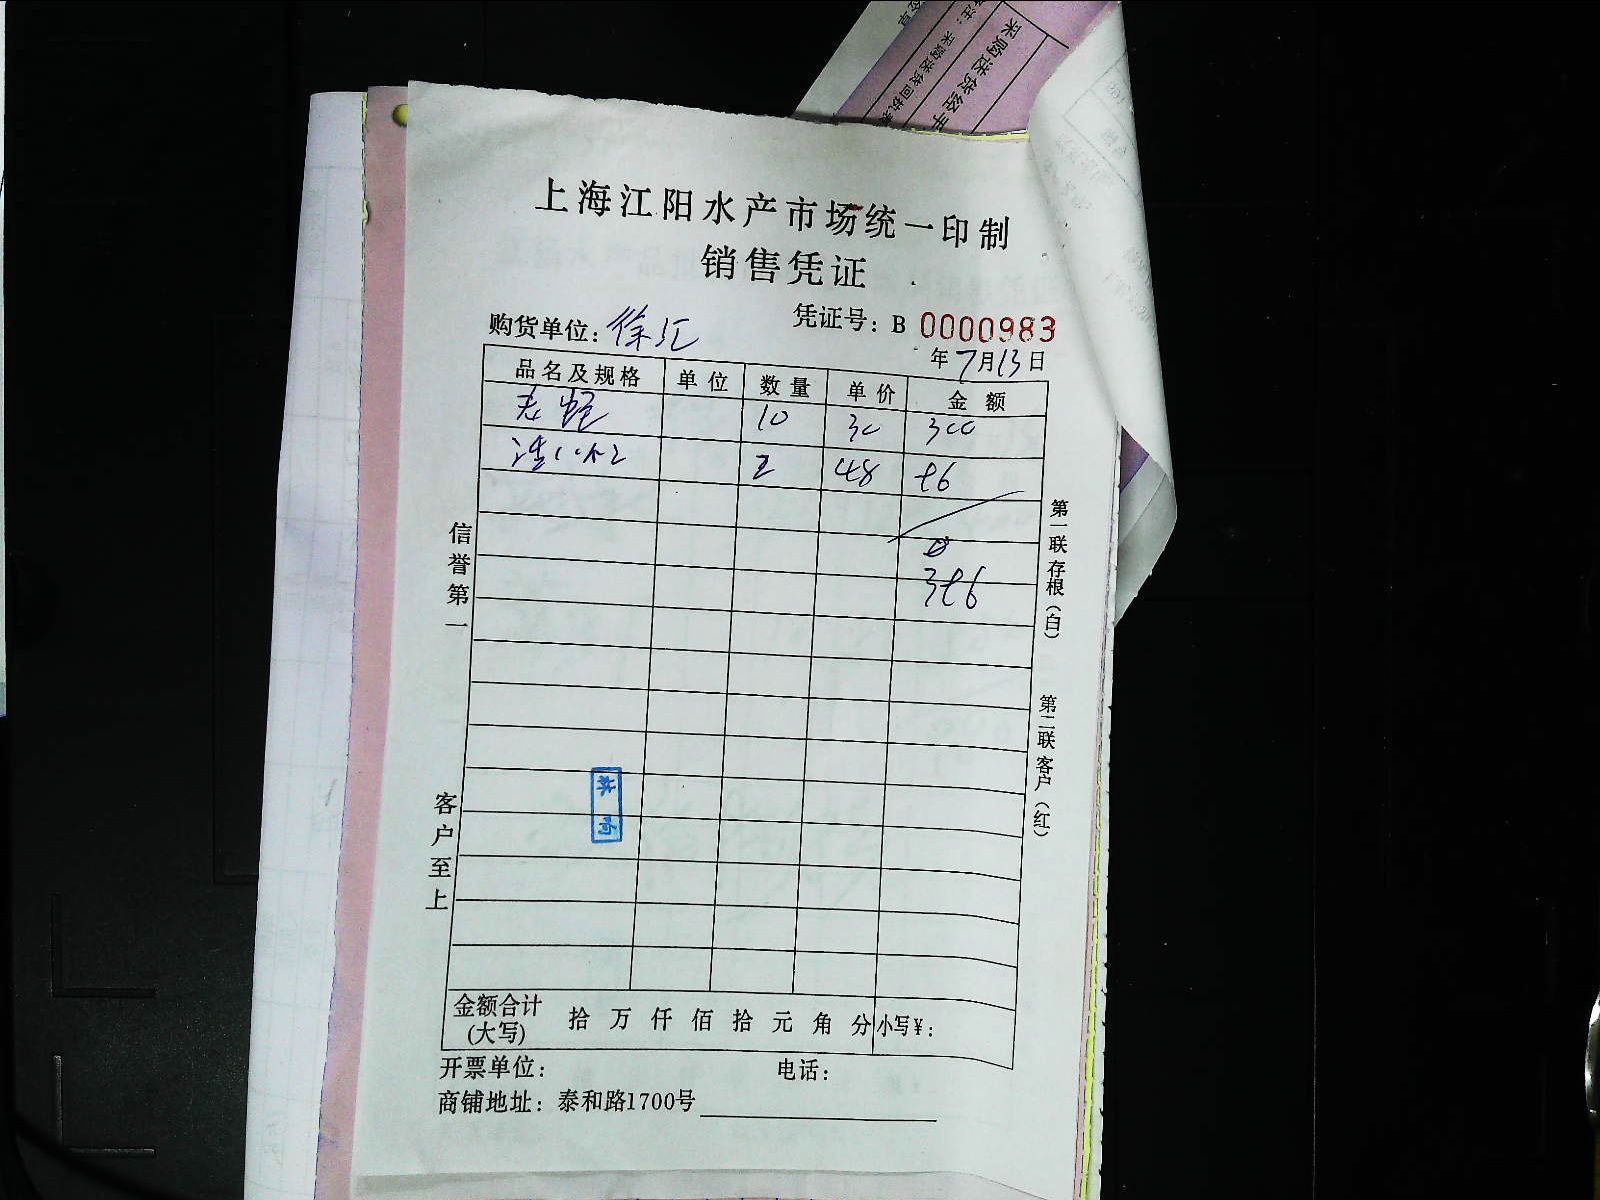 采购送货经手
采购送货回执
上海江阳水产市场统一印制
销售凭证
购货单位：徐汇
凭证号：B 0000983
年7月13日
品名及规格 单位 数量 单价 金额
10 30 300
2 48 96
396
信誉第一
客户至上
第一联 存根（白）
第二联 客户（红）
金额合计(大写) 拾 万 仟 佰 拾 元 角 分 小写¥：
开票单位： 电话：
商铺地址：泰和路1700号